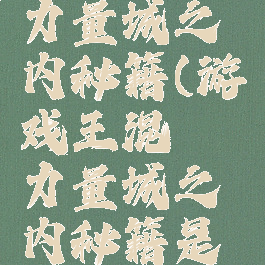 力量城之
内秘籍(游
戏王混
力量城之
内秘籍是